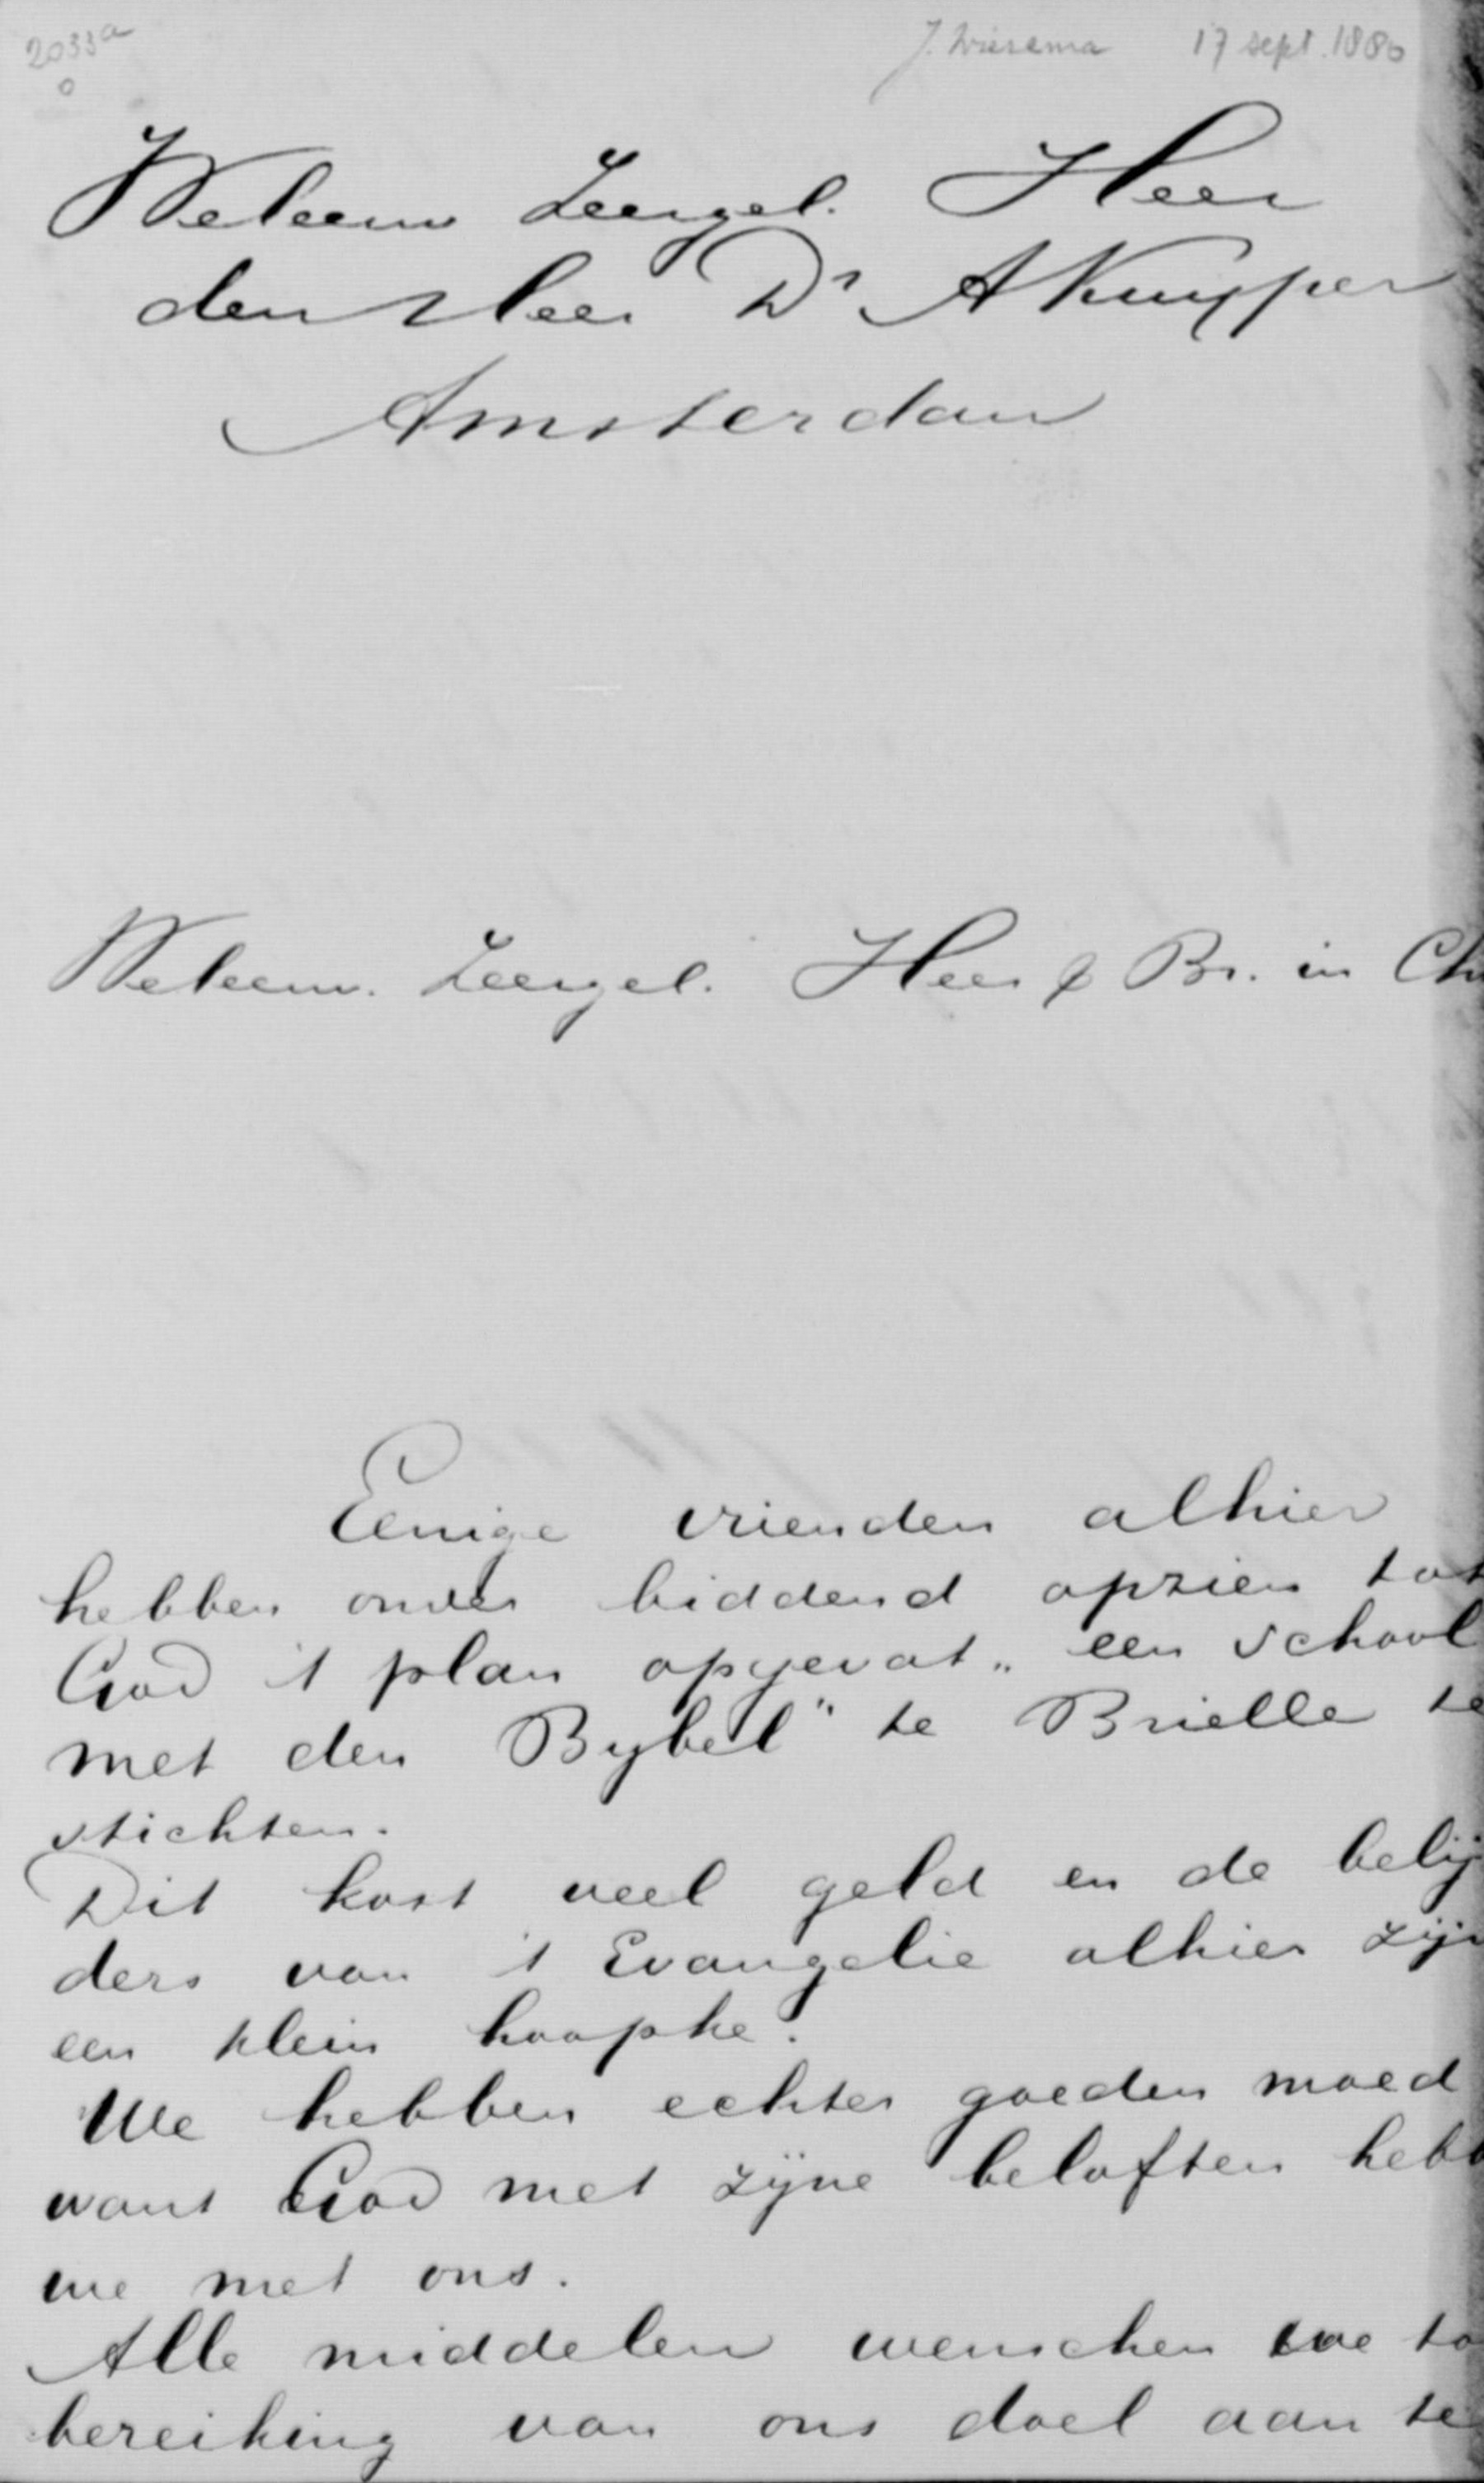 2033a
J. Wiersema 17 sept. 1880
Weleerw Zeergel. Heer
den Heer Dr A Kuyper
Amsterdam
Weleerw. Zeergel. Heer & Br. in Ch
Eenige vrienden alhier
hebben onder biddend opzien tot
God 't plan opgevat „een school
met den Bybel" te Brielle te
stichten.
Dit kost veel geld en de belij
ders van 't Evangelie alhier zijn
een klein hoopke.
We hebben echter goeden moed
want God met zijne beloften hebb
we met ons.
Alle middelen wenschen we to
bereiking van ons doel aan te